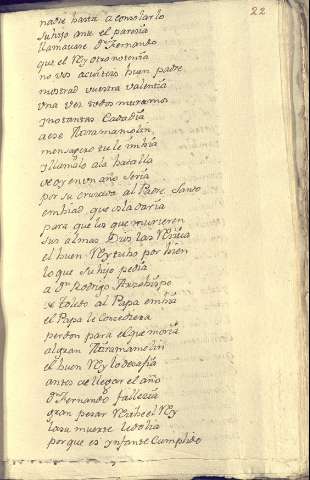 22
nadie basta a consolarlo
su hijo ante el parecia
llamauase Dn Fernando
que el Rey otro no tenia
no vos acuiteis buen padre
mostrad vuestra valentia
vna vez todos muramos
y no tantas Cada dia
a ese Miramamolin
mensagero tu le imbia
y llamalo a la batalla
de oy en vn año seria
por su cruzada al Padre Santo
embiad, que os la daria
para que los que murieren
sus almas Dios las reciva
el buen Rey tubo por bien
lo que su hijo pedia
a Dn Rodrigo Arzobispo
de toledo al Papa embia
el Papa le Concediera
perdon para el que moria
al gran Miramamolin
el buen Rey lo desafia
antes de llegar el año
Dn Fernando fallecia
gran pesar recibe el Rey
la su muerte le dolia
porque es ynfante Cumplido